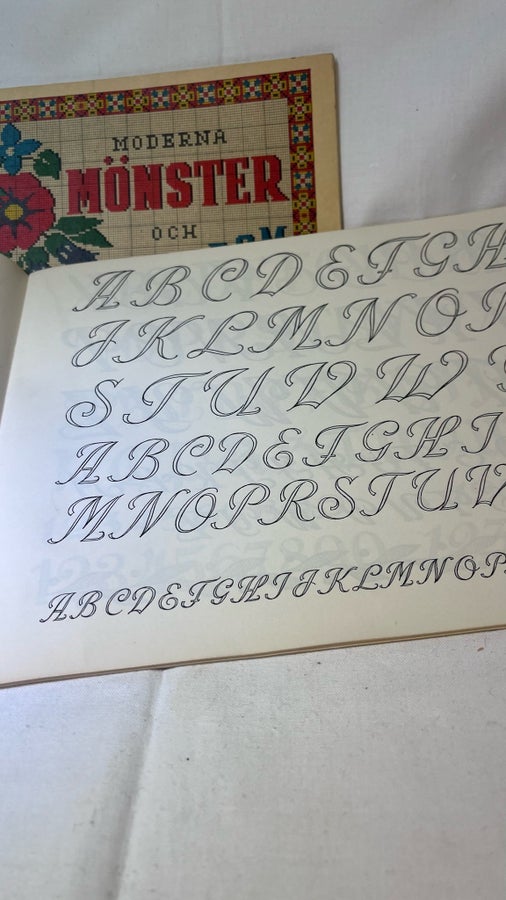 MODERNA
MÖNSTER
OCH
ABCDEFGH
JKLMNO
STUVW
ABCDEFGHI
MNOPRSTUV
ABCDEFGHIJKLMNOP